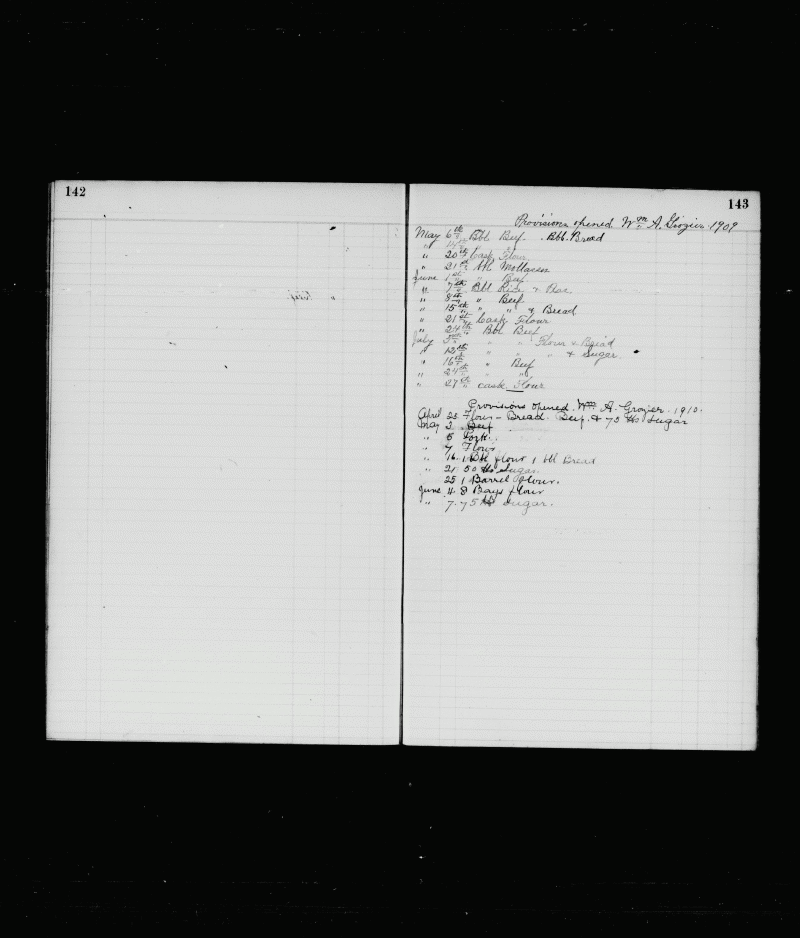 142
143
Provisions opened Wm A. Grozier 1909
May 6th Bbl Beef . Bbl. Bread
"
" 20th Cask Flour
" 21st Bbl Mollasses
June 1st " Beef
" 7th Bbl Rice &
" 8th " Beef
" 15th " " & Bread
" 21st Cask Flour
" 24th Bbl Beef
July 3rd " " Flour & Bread
" 12th " " " & Sugar
" 16th " Beef
" 24th " "
" 27th cask Flour
Provisions opened. Wm A. Grozier. 1910.
April 25 Flour - Bread. Beef. & 75 lbs Sugar
May 2 Beef
" 5 Pork.
" 7 Flour
" 16. 1 Bbl flour 1 bbl Bread
" 21. 50 lbs Sugar.
25 1 Barrel flour.
June 4. 8 Bags flour
" 7. 75 lbs Sugar.